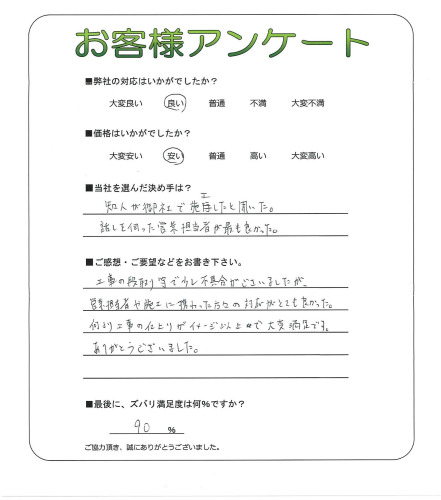 お客様アンケート
■弊社の対応はいかがでしたか？
大変良い 良い 普通 不満 大変不満
■価格はいかがでしたか？
大変安い 安い 普通 高い 大変高い
■当社を選んだ決め手は？
知人が御社で施工したと聞いた。
話しを伺った営業担当者が最も良かった。
■ご感想・ご要望などをお書き下さい。
工事の段取り等で少し不具合がございましたが、
営業担当者や施工に携わった方々の対応がとても良かった。
何より工事の仕上りがイメージ以上で大変満足です。
ありがとうございました。
■最後に、ズバリ満足度は何％ですか？
90 ％
ご協力頂き、誠にありがとうございました。